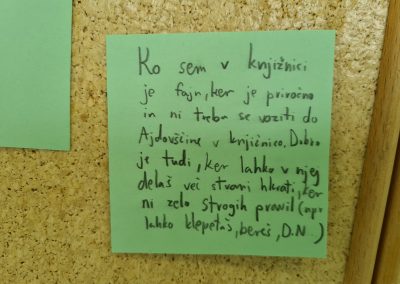 Ko sem v knjižnici
je fajn, ker je priročno
in ni treba se voziti do
Ajdovščine v knjižnico. Dobro
je tudi, ker lahko v njej
delaš več stvari hkrati, ker
ni zelo strogih pravil (npr
lahko klepetaš, bereš, D.N...)